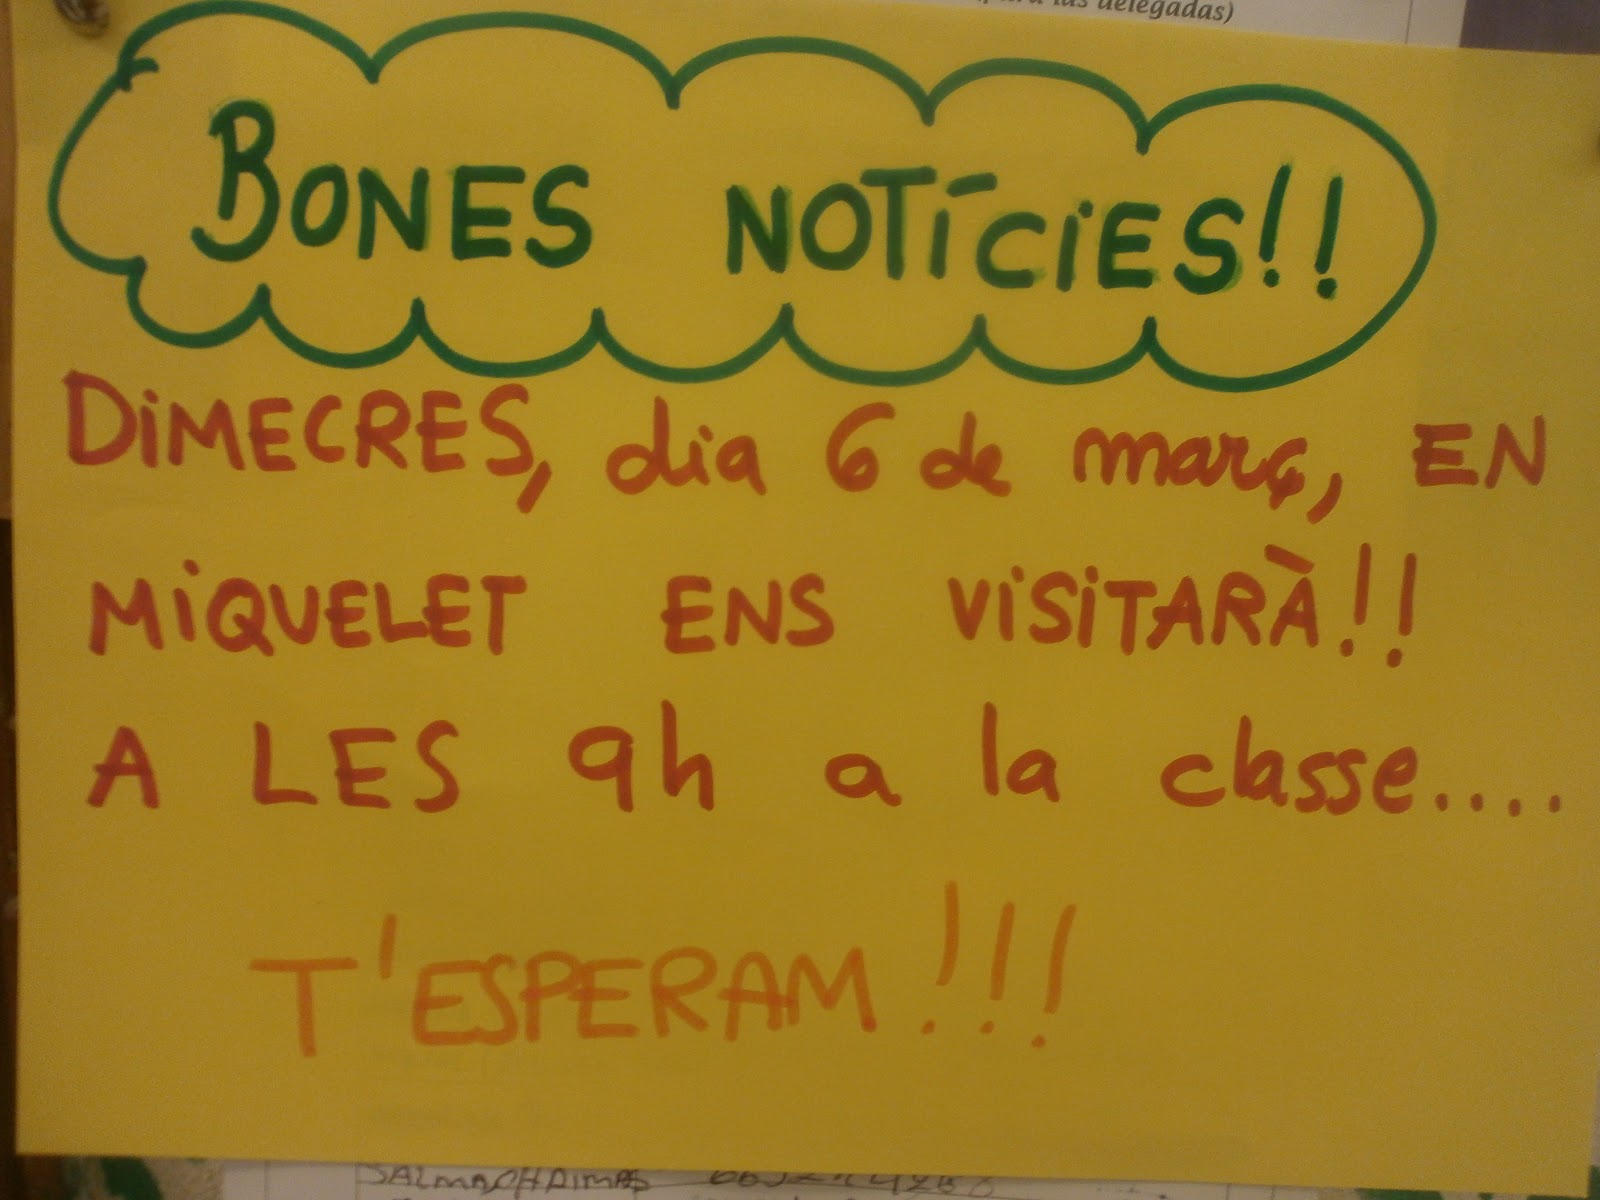 las delegadas)
BONES NOTÍCIES!!
DIMECRES, dia 6 de març, EN
MIQUELET ENS VISITARÀ!!
A LES 9h a la classe....
T'ESPERAM!!!